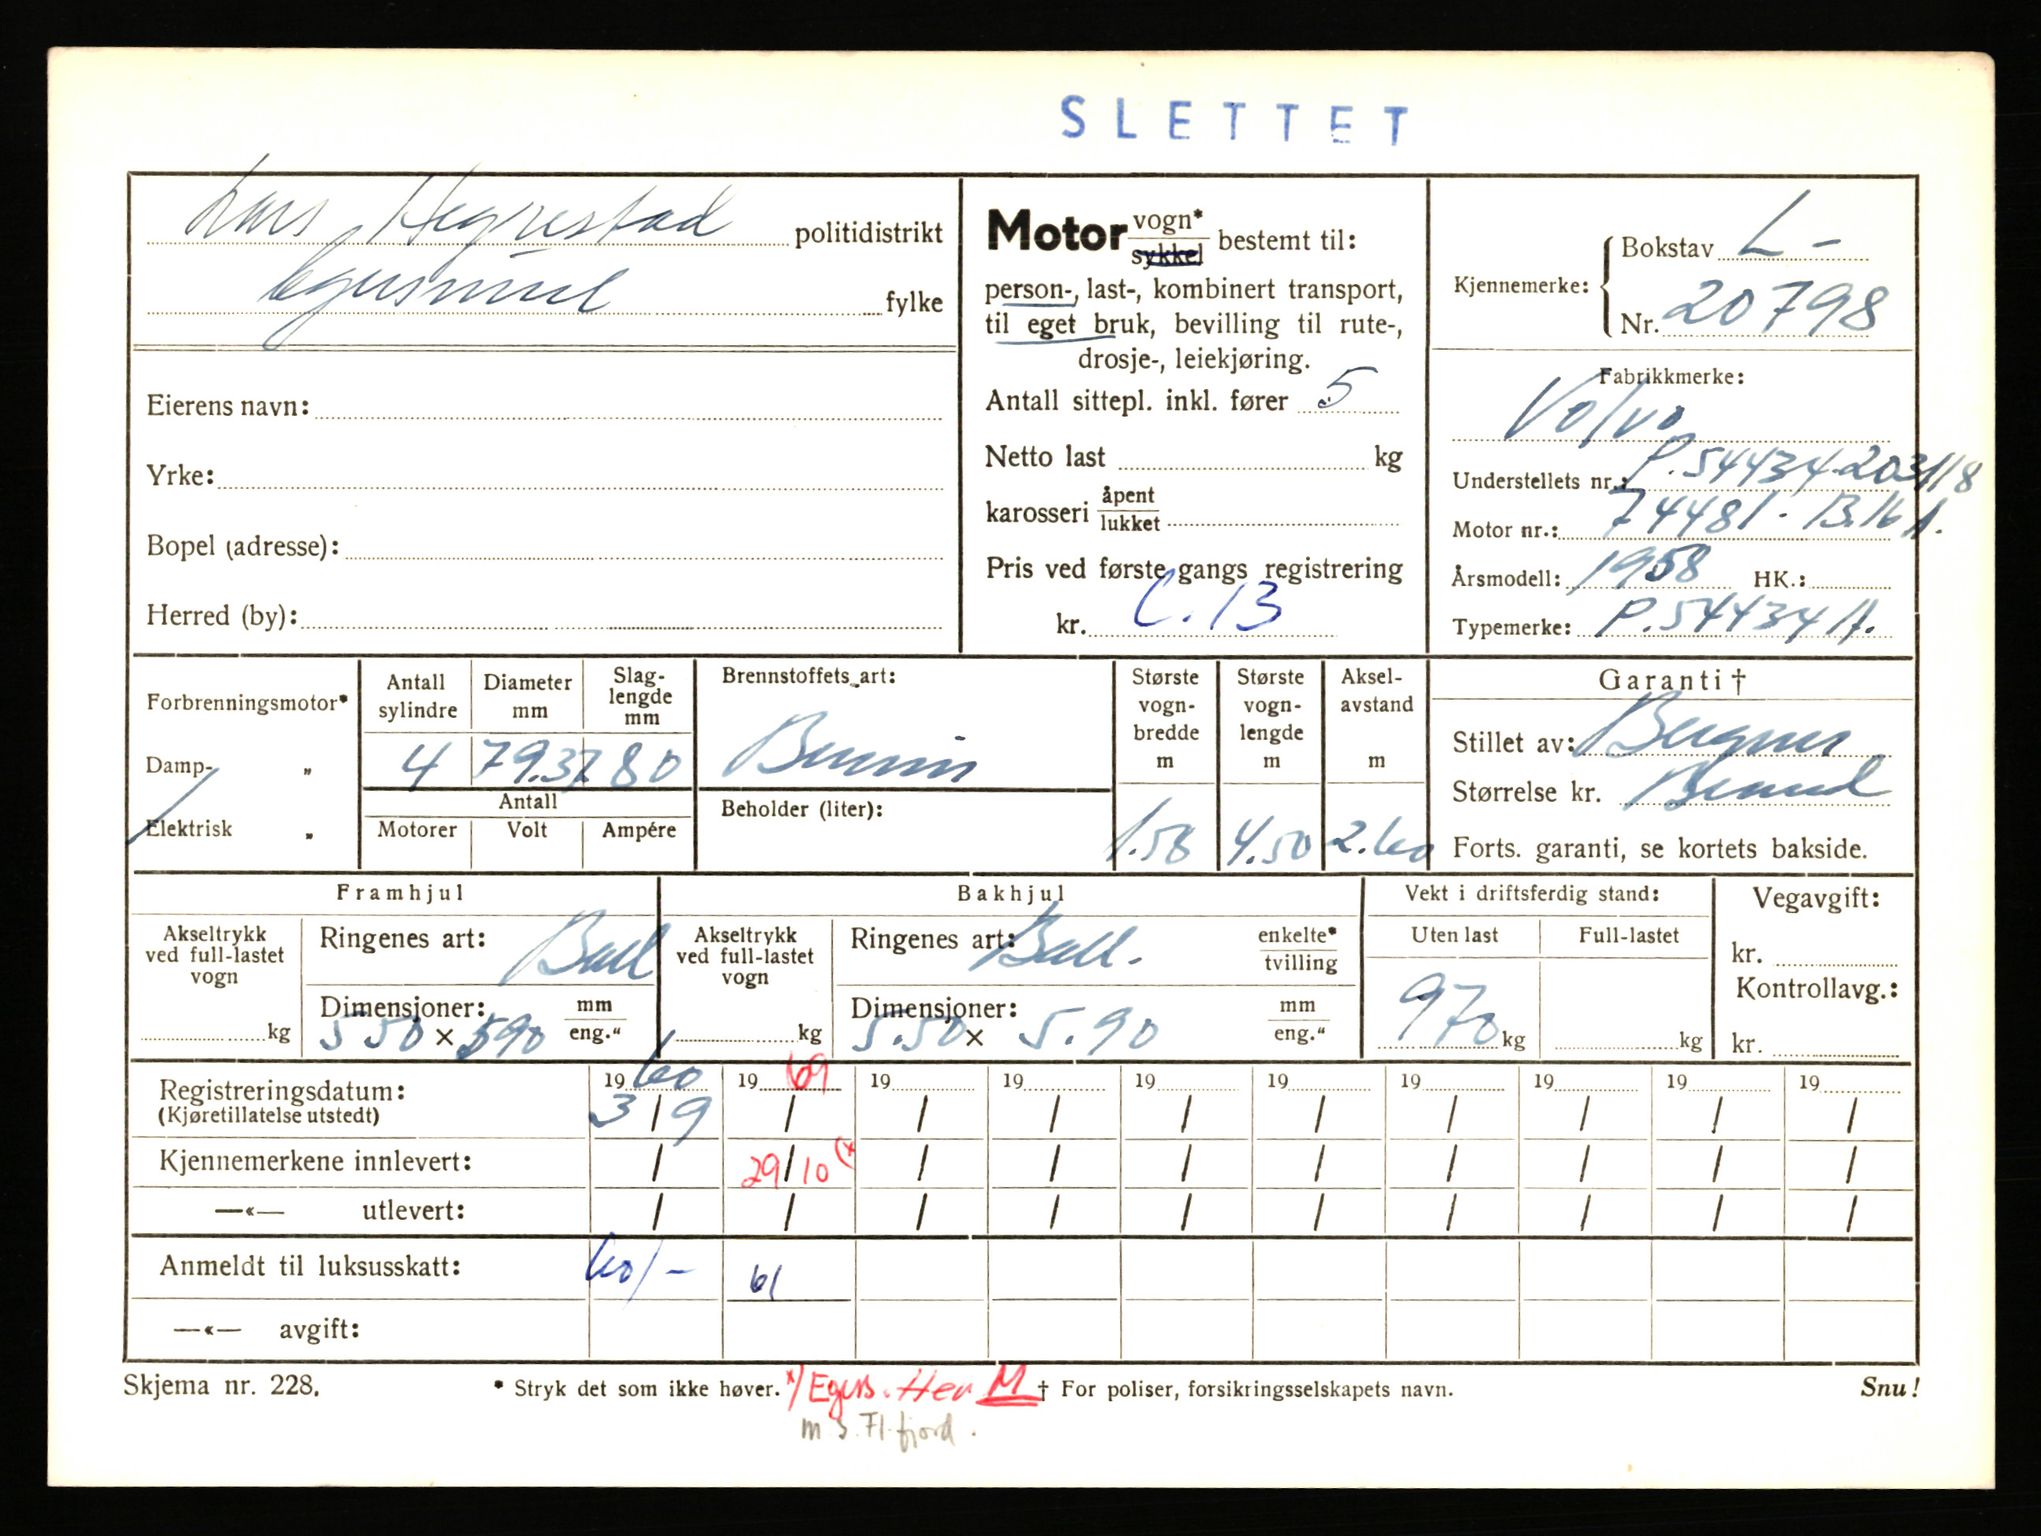 SLETTET
Lars Hegrestad politidistrikt
Egersund fylke
Eierens navn:
Yrke:
Bopel (adresse):
Herred (by):
Motor vogn* sykkel bestemt til:
person-, last-, kombinert transport,
til eget bruk, bevilling til rute-,
drosje-, leiekjøring.
Antall sittepl. inkl. fører 5
Netto last kg
karosseri åpent lukket
Pris ved første gangs registrering
kr. C. 13
Kjennemerke: Bokstav L -
Nr. 20798
Fabrikkmerke:
Volvo
Understellets nr.: P. 54434-203118
Motor nr.: 74481 - 13.16 A.
Årsmodell: 1958 HK.:
Typemerke: P. 54434 A.
Forbrenningsmotor*
Damp- „
Elektrisk „
Antall sylindre
Diameter mm
Slag-lengde mm
4 79.37 80
Antall
Motorer Volt Ampére
Brennstoffets art:
Bensin
Beholder (liter):
Største vogn-bredde m
1.58
Største vogn-lengde m
4.50
Aksel-avstand m
2.60
Garanti †
Stillet av:
Størrelse kr.
Forts. garanti, se kortets bakside.
Framhjul
Akseltrykk ved full-lastet vogn
kg
Ringenes art: Ball
Dimensjoner: mm eng."
5 50 x 590
Bakhjul
Akseltrykk ved full-lastet vogn
kg
Ringenes art: Ball. enkelte* tvilling
Dimensjoner: mm eng."
5.50 x 5.90
Vekt i driftsferdig stand:
Uten last Full-lastet
970 kg kg
Vegavgift:
kr.
Kontrollavg.:
kr.
Registreringsdatum: 19 60 19 69 19 19 19 19 19 19 19 19
(Kjøretillatelse utstedt) 3 / 9 / / / / / / / / /
Kjennemerkene innlevert: / 29/10 (x / / / / / / / /
—«— utlevert: / / / / / / / / / /
Anmeldt til luksusskatt: 60/- 61
—«— avgift:
Skjema nr. 228. * Stryk det som ikke høver. x/ Egers. Her M † For poliser, forsikringsselskapets navn. Snu!
m S. Fl.fjord.